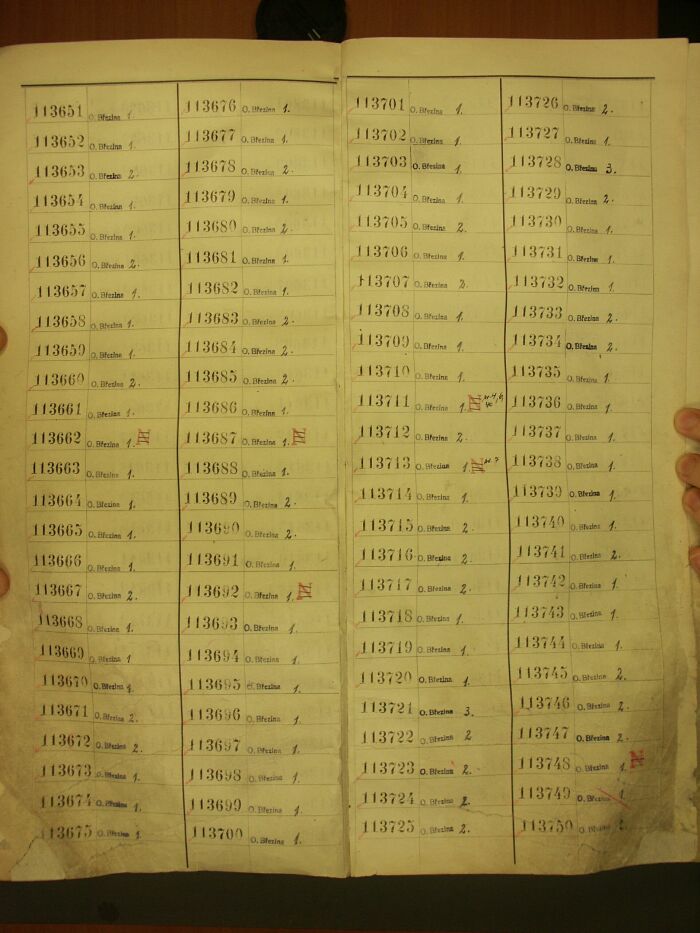 113651 O. Březina 1.
113652 O. Březina 1.
113653 O. Březina 2.
113654 O. Březina 1.
113655 O. Březina 1.
113656 O. Březina 2.
113657 O. Březina 1.
113658 O. Březina 1.
113659 O. Březina 1.
113660 O. Březina 2.
113661 O. Březina 1.
113662 O. Březina 1.
113663 O. Březina 1.
113664 O. Březina 1.
113665 O. Březina 1.
113666 O. Březina 1.
113667 O. Březina 2.
113668 O. Březina 1.
113669 O. Březina 1
113670 O. Březina 1.
113671 O. Březina 2.
113672 O. Březina 2.
113673 O. Březina 1.
113674 O. Březina 1.
113675 O. Březina 1.
113676 O. Březina 1.
113677 O. Březina 1.
113678 O. Březina 2.
113679 O. Březina 1.
113680 O. Březina 2.
113681 O. Březina 1.
113682 O. Březina 1.
113683 O. Březina 2.
113684 O. Březina 2.
113685 O. Březina 2.
113686 O. Březina 1.
113687 O. Březina 1.
113688 O. Březina 1.
113689 O. Březina 2.
113690 O. Březina 2.
113691 O. Březina 1.
113692 O. Březina 1.
113693 O. Březina 1.
113694 O. Březina 1.
113695 O. Březina 1.
113696 O. Březina 1.
113697 O. Březina 1.
113698 O. Březina 1.
113699 O. Březina 1.
113700 O. Březina 1.
113701 O. Březina 1.
113702 O. Březina 1.
113703 O. Březina 1.
113704 O. Březina 1.
113705 O. Březina 2.
113706 O. Březina 1.
113707 O. Březina 2.
113708 O. Březina 1.
113709 O. Březina 1.
113710 O. Březina 1.
113711 O. Březina 1.
113712 O. Březina 2.
113713 O. Březina 1.
113714 O. Březina 1.
113715 O. Březina 2.
113716 O. Březina 2.
113717 O. Březina 2.
113718 O. Březina 1.
113719 O. Březina 1.
113720 O. Březina 1
113721 O. Březina 3.
113722 O. Březina 2
113723 O. Březina 2.
113724 O. Březina 2.
113725 O. Březina 2.
113726 O. Březina 2.
113727 O. Březina 1.
113728 O. Březina 3.
113729 O. Březina 2.
113730 O. Březina 1.
113731 O. Březina 1.
113732 O. Březina 1.
113733 O. Březina 2.
113734 O. Březina 2.
113735 O. Březina 1.
113736 O. Březina 1.
113737 O. Březina 1.
113738 O. Březina 1.
113739 O. Březina 1.
113740 O. Březina 1.
113741 O. Březina 2.
113742 O. Březina 1.
113743 O. Březina 1.
113744 O. Březina 1.
113745 O. Březina 2.
113746 O. Březina 2.
113747 O. Březina 2.
113748 O. Březina 1.
113749 O. Březina 1.
113750 O. Březina